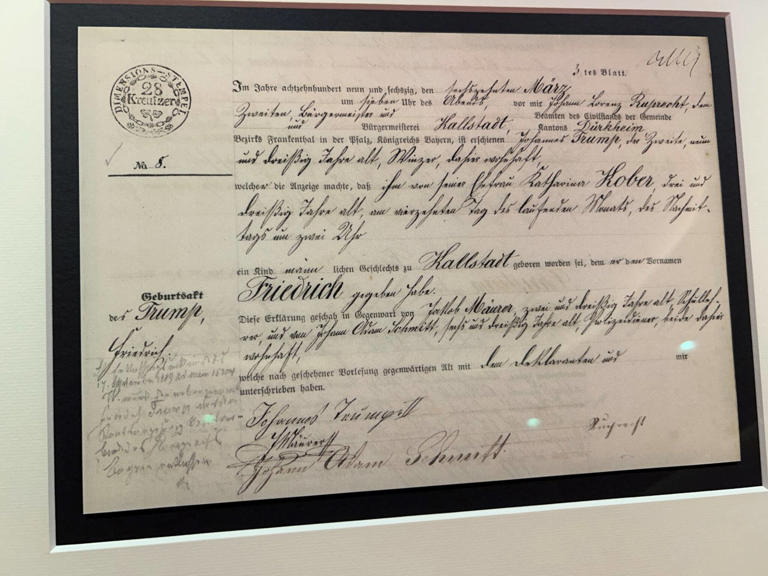 3 tes Blatt.
DIMENSIONS-STEMPEL
28
Kreutzer
Im Jahre achtzehnhundert neun und sechszig, den sechszehnten März
um sieben Uhr des Abends, vor mir Johann Lorenz Ruprecht, dem
Zweiten, Bürgermeister und Beamten des Civilstandes der Gemeinde
und Bürgermeisterei Kallstadt, Kantons Dürkheim
Bezirks Frankenthal in der Pfalz, Königreichs Bayern, ist erschienen Johannes Trump, der Zweite, neun
No 8.
und dreißig Jahre alt, Winzer, daher wohnhaft,
welcher die Anzeige machte, daß ihm von seiner Ehefrau Katharina Kober, drei und
dreißig Jahre alt, am vierzehnten Tag des laufenden Monats, des Nachmit-
tags um zwei Uhr
ein Kind männ lichen Geschlechts zu Kallstadt geboren worden sei, dem er den Vornamen
Friedrich gegeben habe.
Geburtsakt
des Trump,
Friedrich
Diese Erklärung geschah in Gegenwart von Jakob Mäurer, zwei und dreißig Jahre alt, Schulleh-
rer, und von Johann Adam Schmitt, sechs und dreißig Jahre alt, Polizeidiener, beide daher
wohnhaft,
welche nach geschehener Vorlesung gegenwärtigen Akt mit dem Deklaranten und mir
unterschrieben haben.
Johannes Trump II
J Mäurer
Johann Adam Schmitt.
Ruprecht